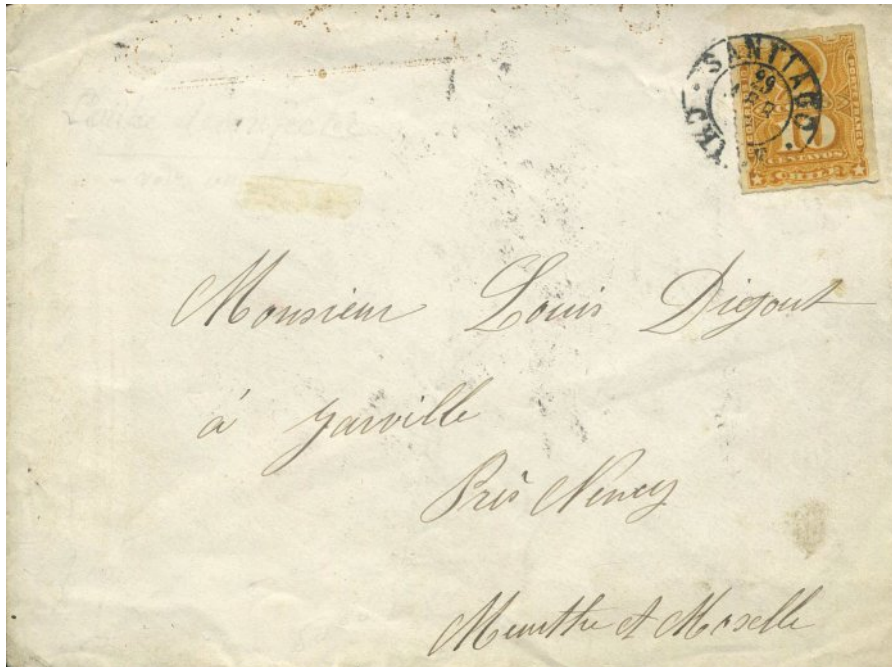 SANTIAGO
99
ABR
10
CENTAVOS
CHILE
Monsieur Louis Digout
à Jarville
Près Nancy
Meurthe et Moselle